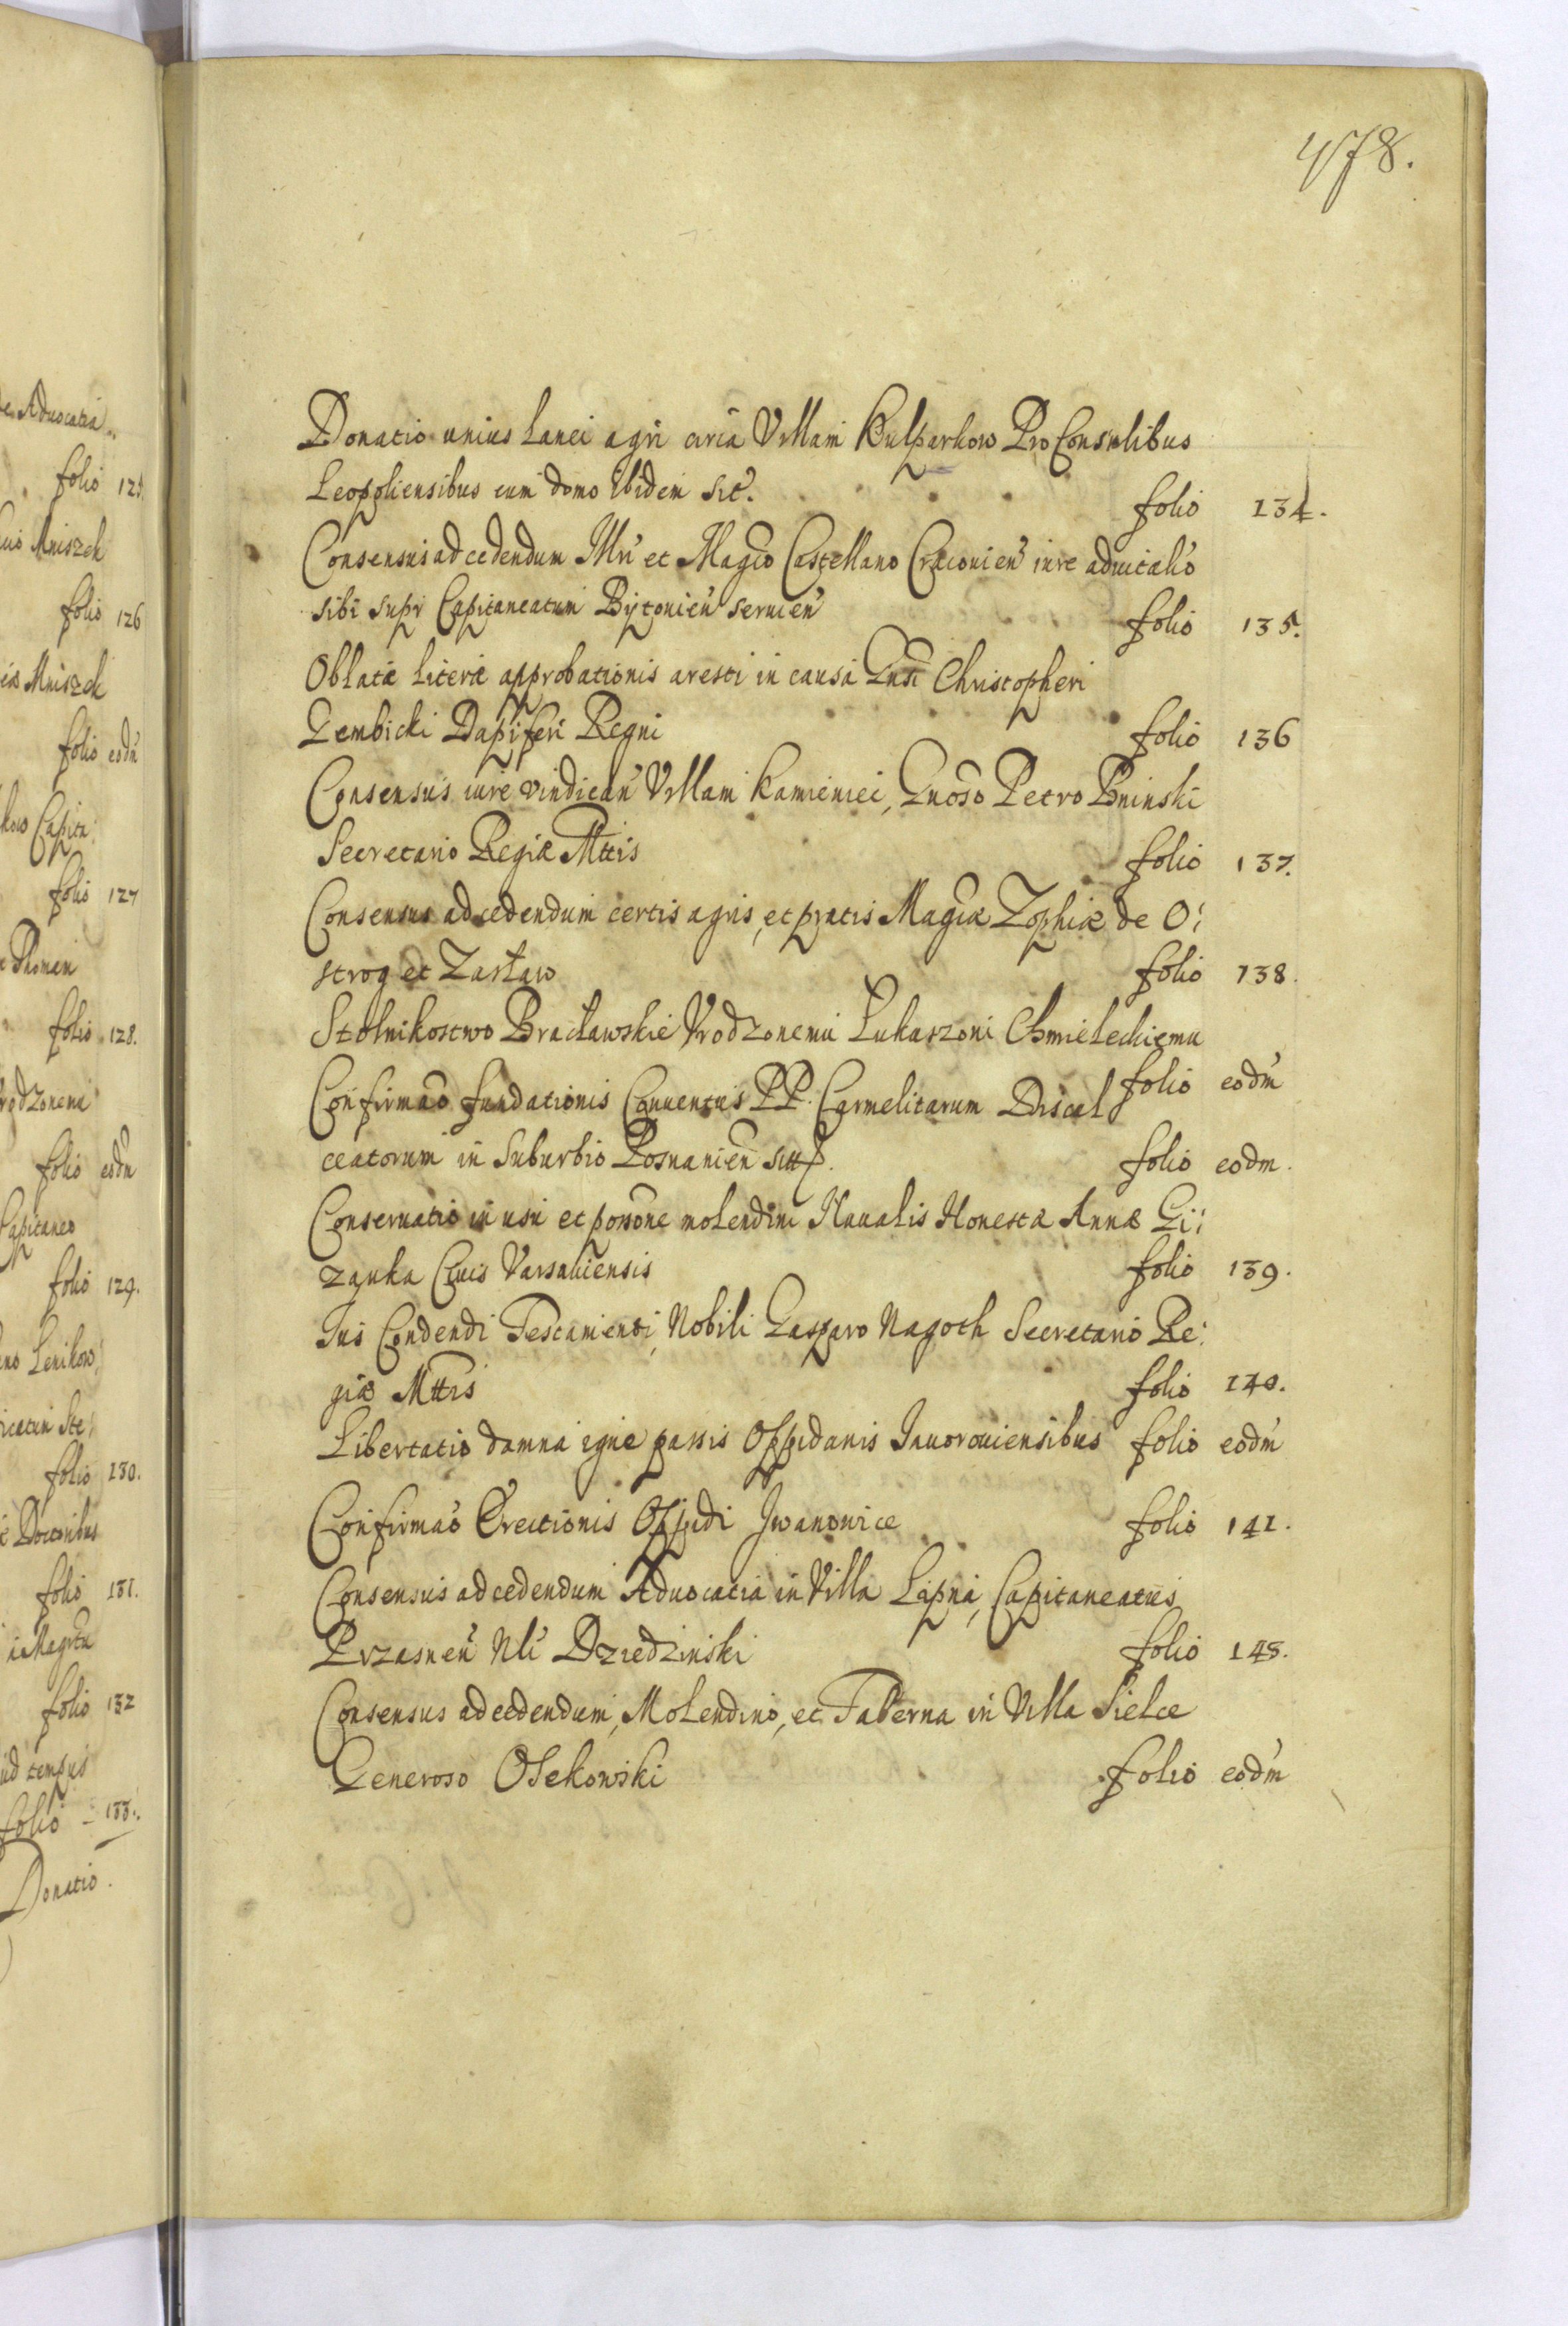 478.
Donatio unius Lanei agri circa Villam Kulparkow Pro Consulibus
Leopoliensibus cum domo ibidem sit. folio 134.
Consensus ad cedendum Illri et Magco Castellano Cracouien iure aduitalio
sibi supr Capitaneatum Bytouien seruien folio 135.
Oblatæ literæ approbationis aresti in causa Gnsi Christopheri
Gembicki Dapiferi Regni folio 136
Consensus iure vindican Villam Kamieniei, Gnoso Petro Bninski
Secretario Regiæ Mttis folio 137.
Consensus ad cedendum certis agris, et pratis Magcæ Zophiæ de O:
strog et Zasław folio 138.
Stolnikostwo Bracławskie Vrodzonemu Łukaszoni Chmieleckiemu
folio eodm
Confirmao fundationis Conuentus PP. Carmelitarum Discal
ceatorum in Suburbio Posnanien sitt. folio eodm.
Conseruatio in usu et possone molendini Naualis Honesta Annæ Gi:
zanka Ciuis Varsauiensis folio 139.
Ius Condendi Testamenti, Nobili Gasparo Nagoth Secretario Re:
giæ Mttis folio 140.
Libertatio damna igne passis Oppidanis Iauorouiensibus folio eodm
Confirmao Erectionis Oppidi Iwanowice folio 141.
Consensus ad cedendum Aduocatia in Villa Lipna, Capitaneatus
Przasnen Nli Dziedzinski folio 143.
Consensus ad cedendum, Molendino, et Taberna in Villa Sielce
Generoso Osekowski folio eodm
de Aduocatia
folio 125.
Mniszch
folio 126
Mniszch
folio eodm
Capita:
folio 127
folio 128.
rodzonemu
folio eodm
Capitaneo
folio 129.
Lenikow
folio 130.
Doctoribus
folio 131.
folio 132
tempus
folio - 133.
Donatio.